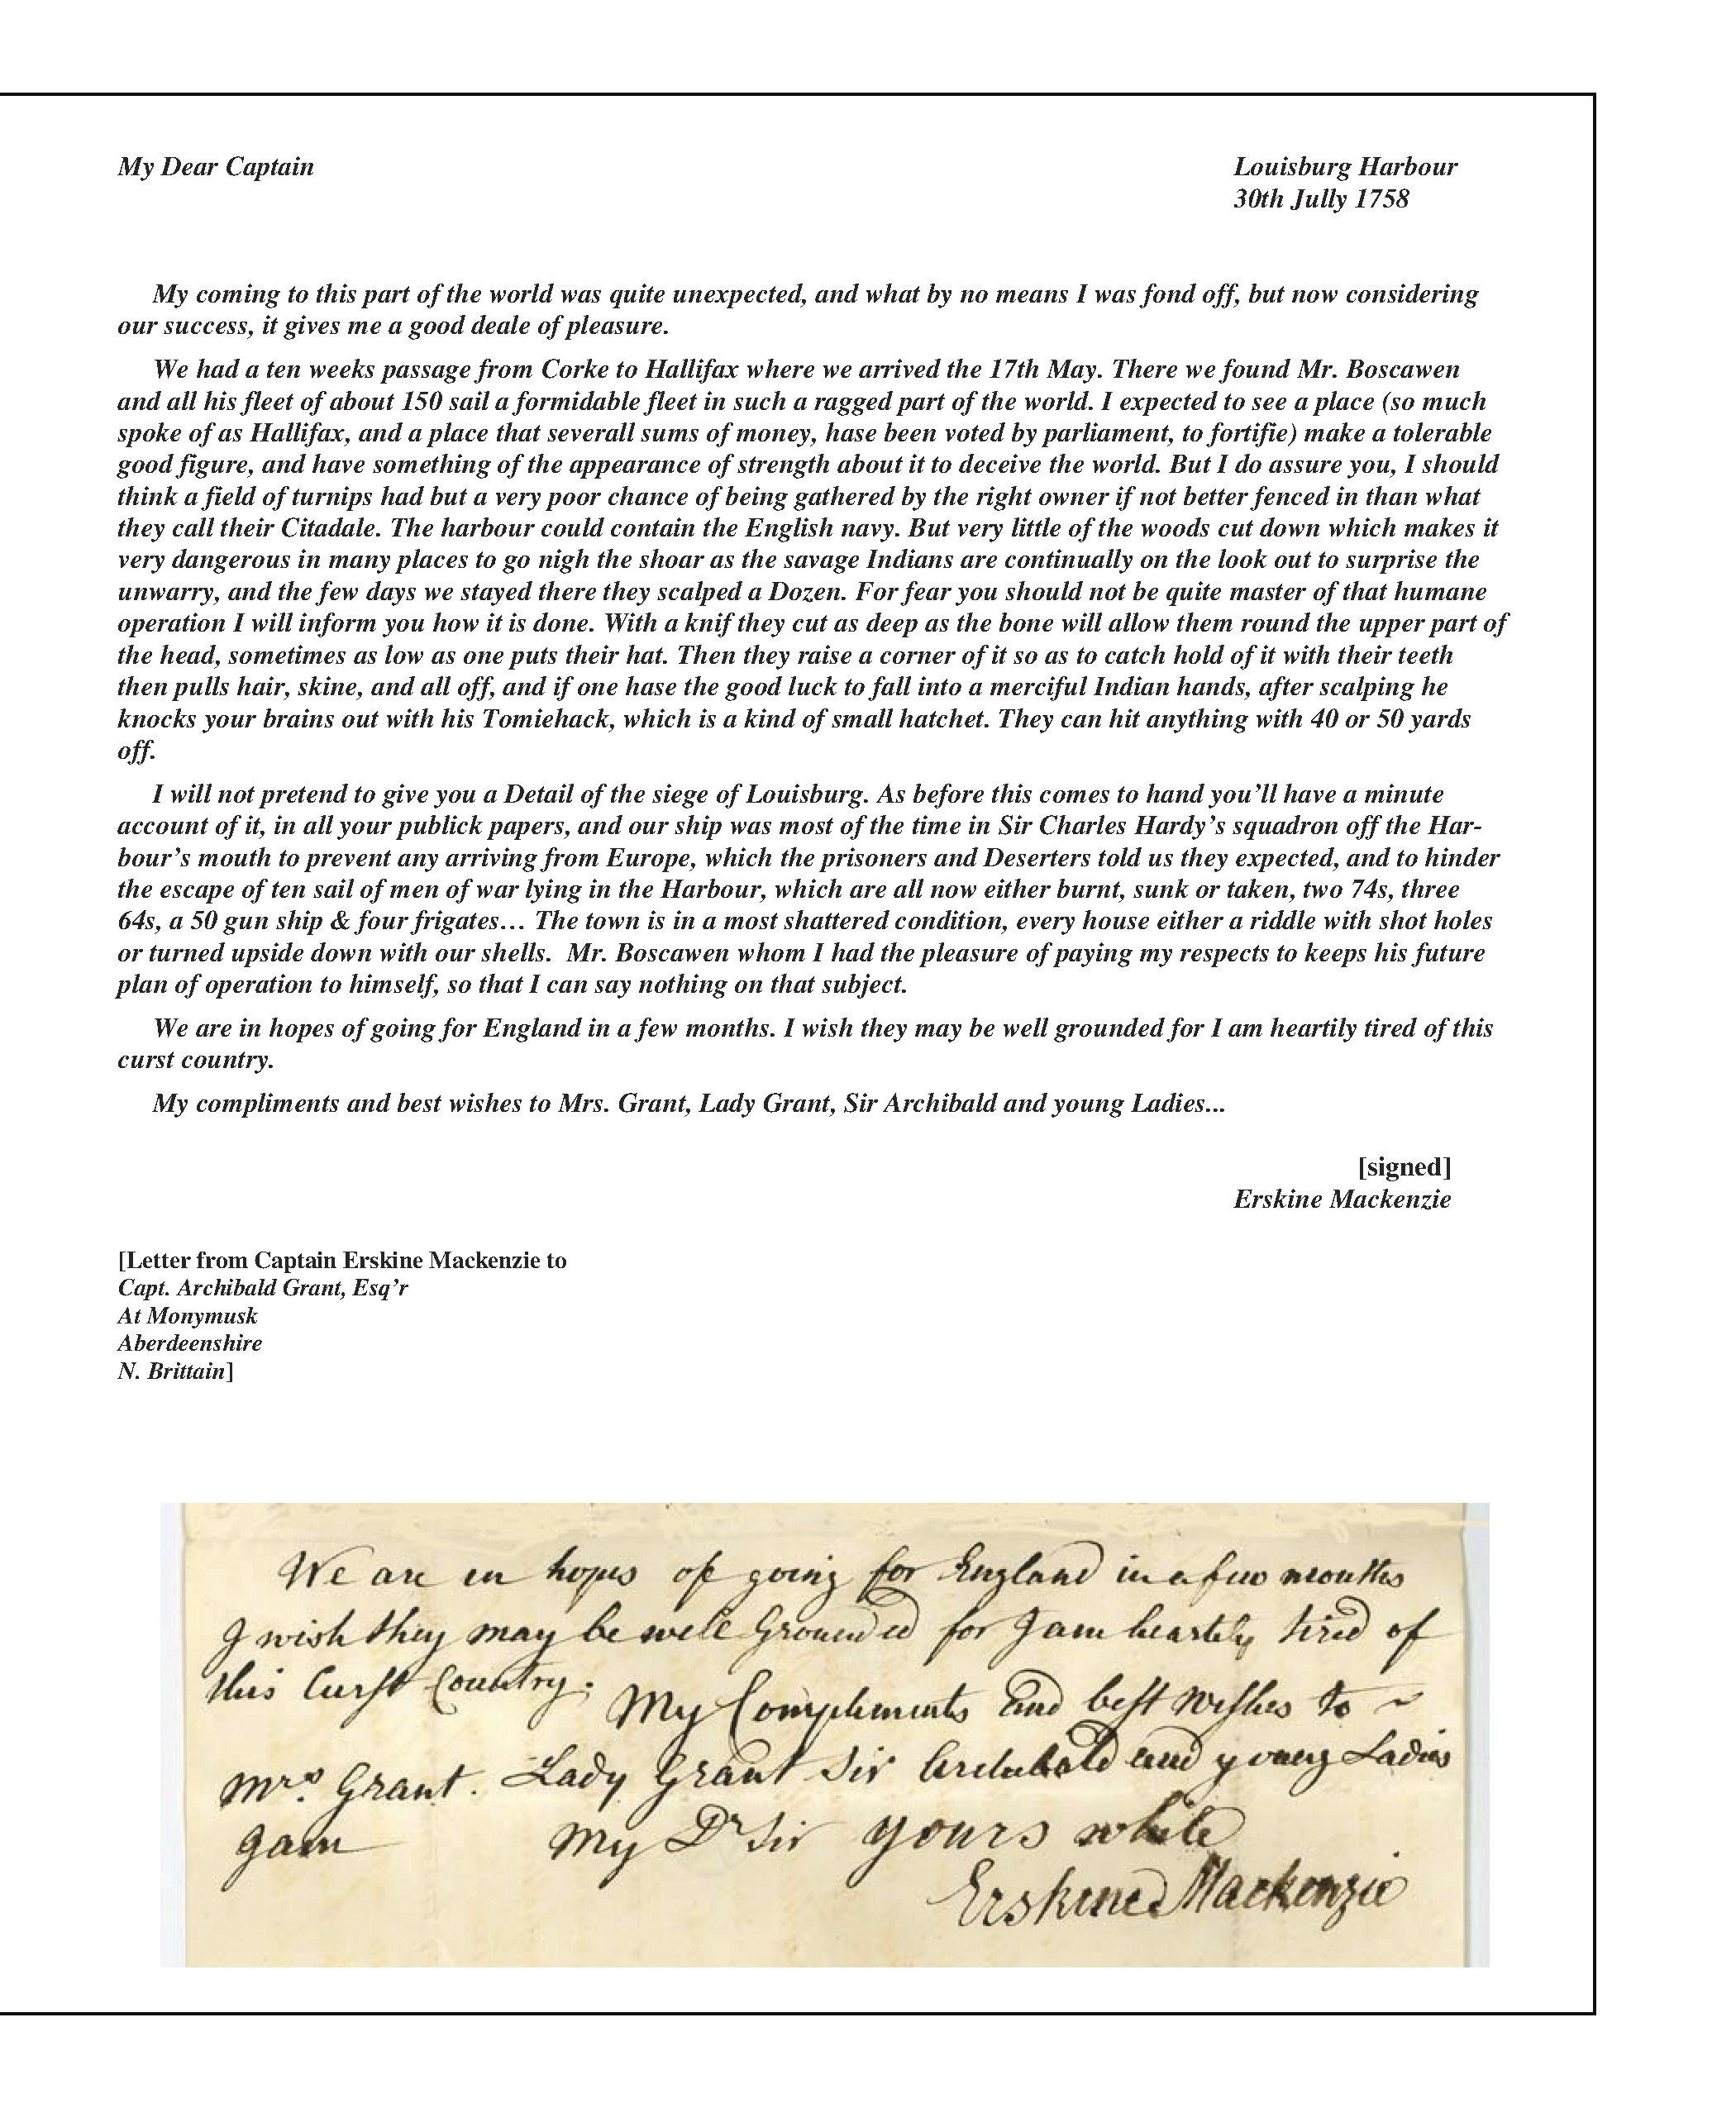 My Dear Captain
Louisburg Harbour
30th Jully 1758
My coming to this part of the world was quite unexpected, and what by no means I was fond off, but now considering
our success, it gives me a good deale of pleasure.
We had a ten weeks passage from Corke to Hallifax where we arrived the 17th May. There we found Mr. Boscawen
and all his fleet of about 150 sail a formidable fleet in such a ragged part of the world. I expected to see a place (so much
spoke of as Hallifax, and a place that severall sums of money, hase been voted by parliament, to fortifie) make a tolerable
good figure, and have something of the appearance of strength about it to deceive the world. But I do assure you, I should
think a field of turnips had but a very poor chance of being gathered by the right owner if not better fenced in than what
they call their Citadale. The harbour could contain the English navy. But very little of the woods cut down which makes it
very dangerous in many places to go nigh the shoar as the savage Indians are continually on the look out to surprise the
unwarry, and the few days we stayed there they scalped a Dozen. For fear you should not be quite master of that humane
operation I will inform you how it is done. With a knif they cut as deep as the bone will allow them round the upper part of
the head, sometimes as low as one puts their hat. Then they raise a corner of it so as to catch hold of it with their teeth
then pulls hair, skine, and all off, and if one hase the good luck to fall into a merciful Indian hands, after scalping he
knocks your brains out with his Tomiehack, which is a kind of small hatchet. They can hit anything with 40 or 50 yards
off.
I will not pretend to give you a Detail of the siege of Louisburg. As before this comes to hand you'll have a minute
account of it, in all your publick papers, and our ship was most of the time in Sir Charles Hardy's squadron off the Har-
bour's mouth to prevent any arriving from Europe, which the prisoners and Deserters told us they expected, and to hinder
the escape of ten sail of men of war lying in the Harbour, which are all now either burnt, sunk or taken, two 74s, three
64s, a 50 gun ship & four frigates… The town is in a most shattered condition, every house either a riddle with shot holes
or turned upside down with our shells. Mr. Boscawen whom I had the pleasure of paying my respects to keeps his future
plan of operation to himself, so that I can say nothing on that subject.
We are in hopes of going for England in a few months. I wish they may be well grounded for I am heartily tired of this
curst country.
My compliments and best wishes to Mrs. Grant, Lady Grant, Sir Archibald and young Ladies...
[signed]
Erskine Mackenzie
[Letter from Captain Erskine Mackenzie to
Capt. Archibald Grant, Esq'r
At Monymusk
Aberdeenshire
N. Brittain]
We are in hopes of going for England in a few months
I wish they may be well Grounded for I am heartily tired of
this Curst Country. My Compliments and best wishes to ~
Mrs. Grant. Lady Grant Sir Archibald and young Ladies
I am My Dr Sir yours while
Erskine Mackenzie